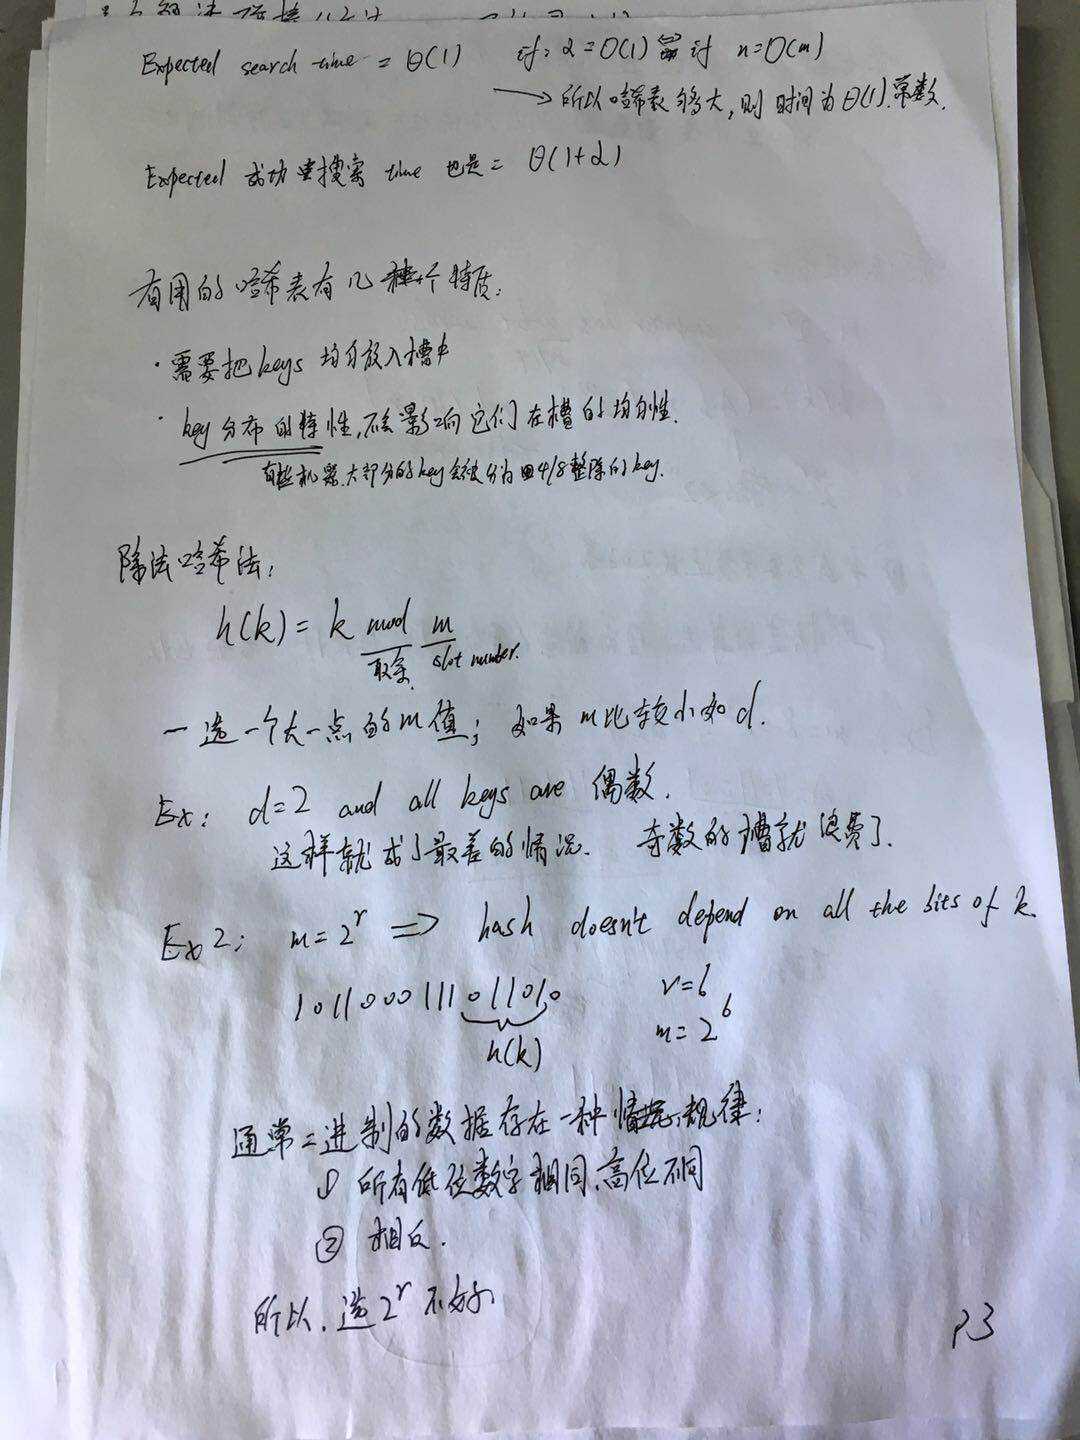 Expected search time = Θ(1) if: α = O(1) if n = O(m)
→ 所以哈希表够大,则时间为Θ(1).常数.
Expected 成功搜索 time 也是 = Θ(1+α)
有用的哈希表有几个特质:
· 需要把keys 均匀放入槽中
· key 分布的特性,不会影响它们在槽的均匀性.
有些机器.大部分的key会被分为4/8整除的key.
除法哈希法:
h(k) = k mod m
取余 slot number.
一 选一个大一点的m值; 如果 m比较小如 d.
Ex: d=2 and all keys are 偶数.
这样就成了最差的情况. 奇数的槽就浪费了.
Ex2: m = 2^r ⇒ hash doesn't depend on all the bits of k.
1011000111011010 r=6
h(k) m = 2^6
通常二进制的数据存在一种规律:
① 所有低位数字相同,高位不同
② 相反.
所以.选2^r不好.
P3